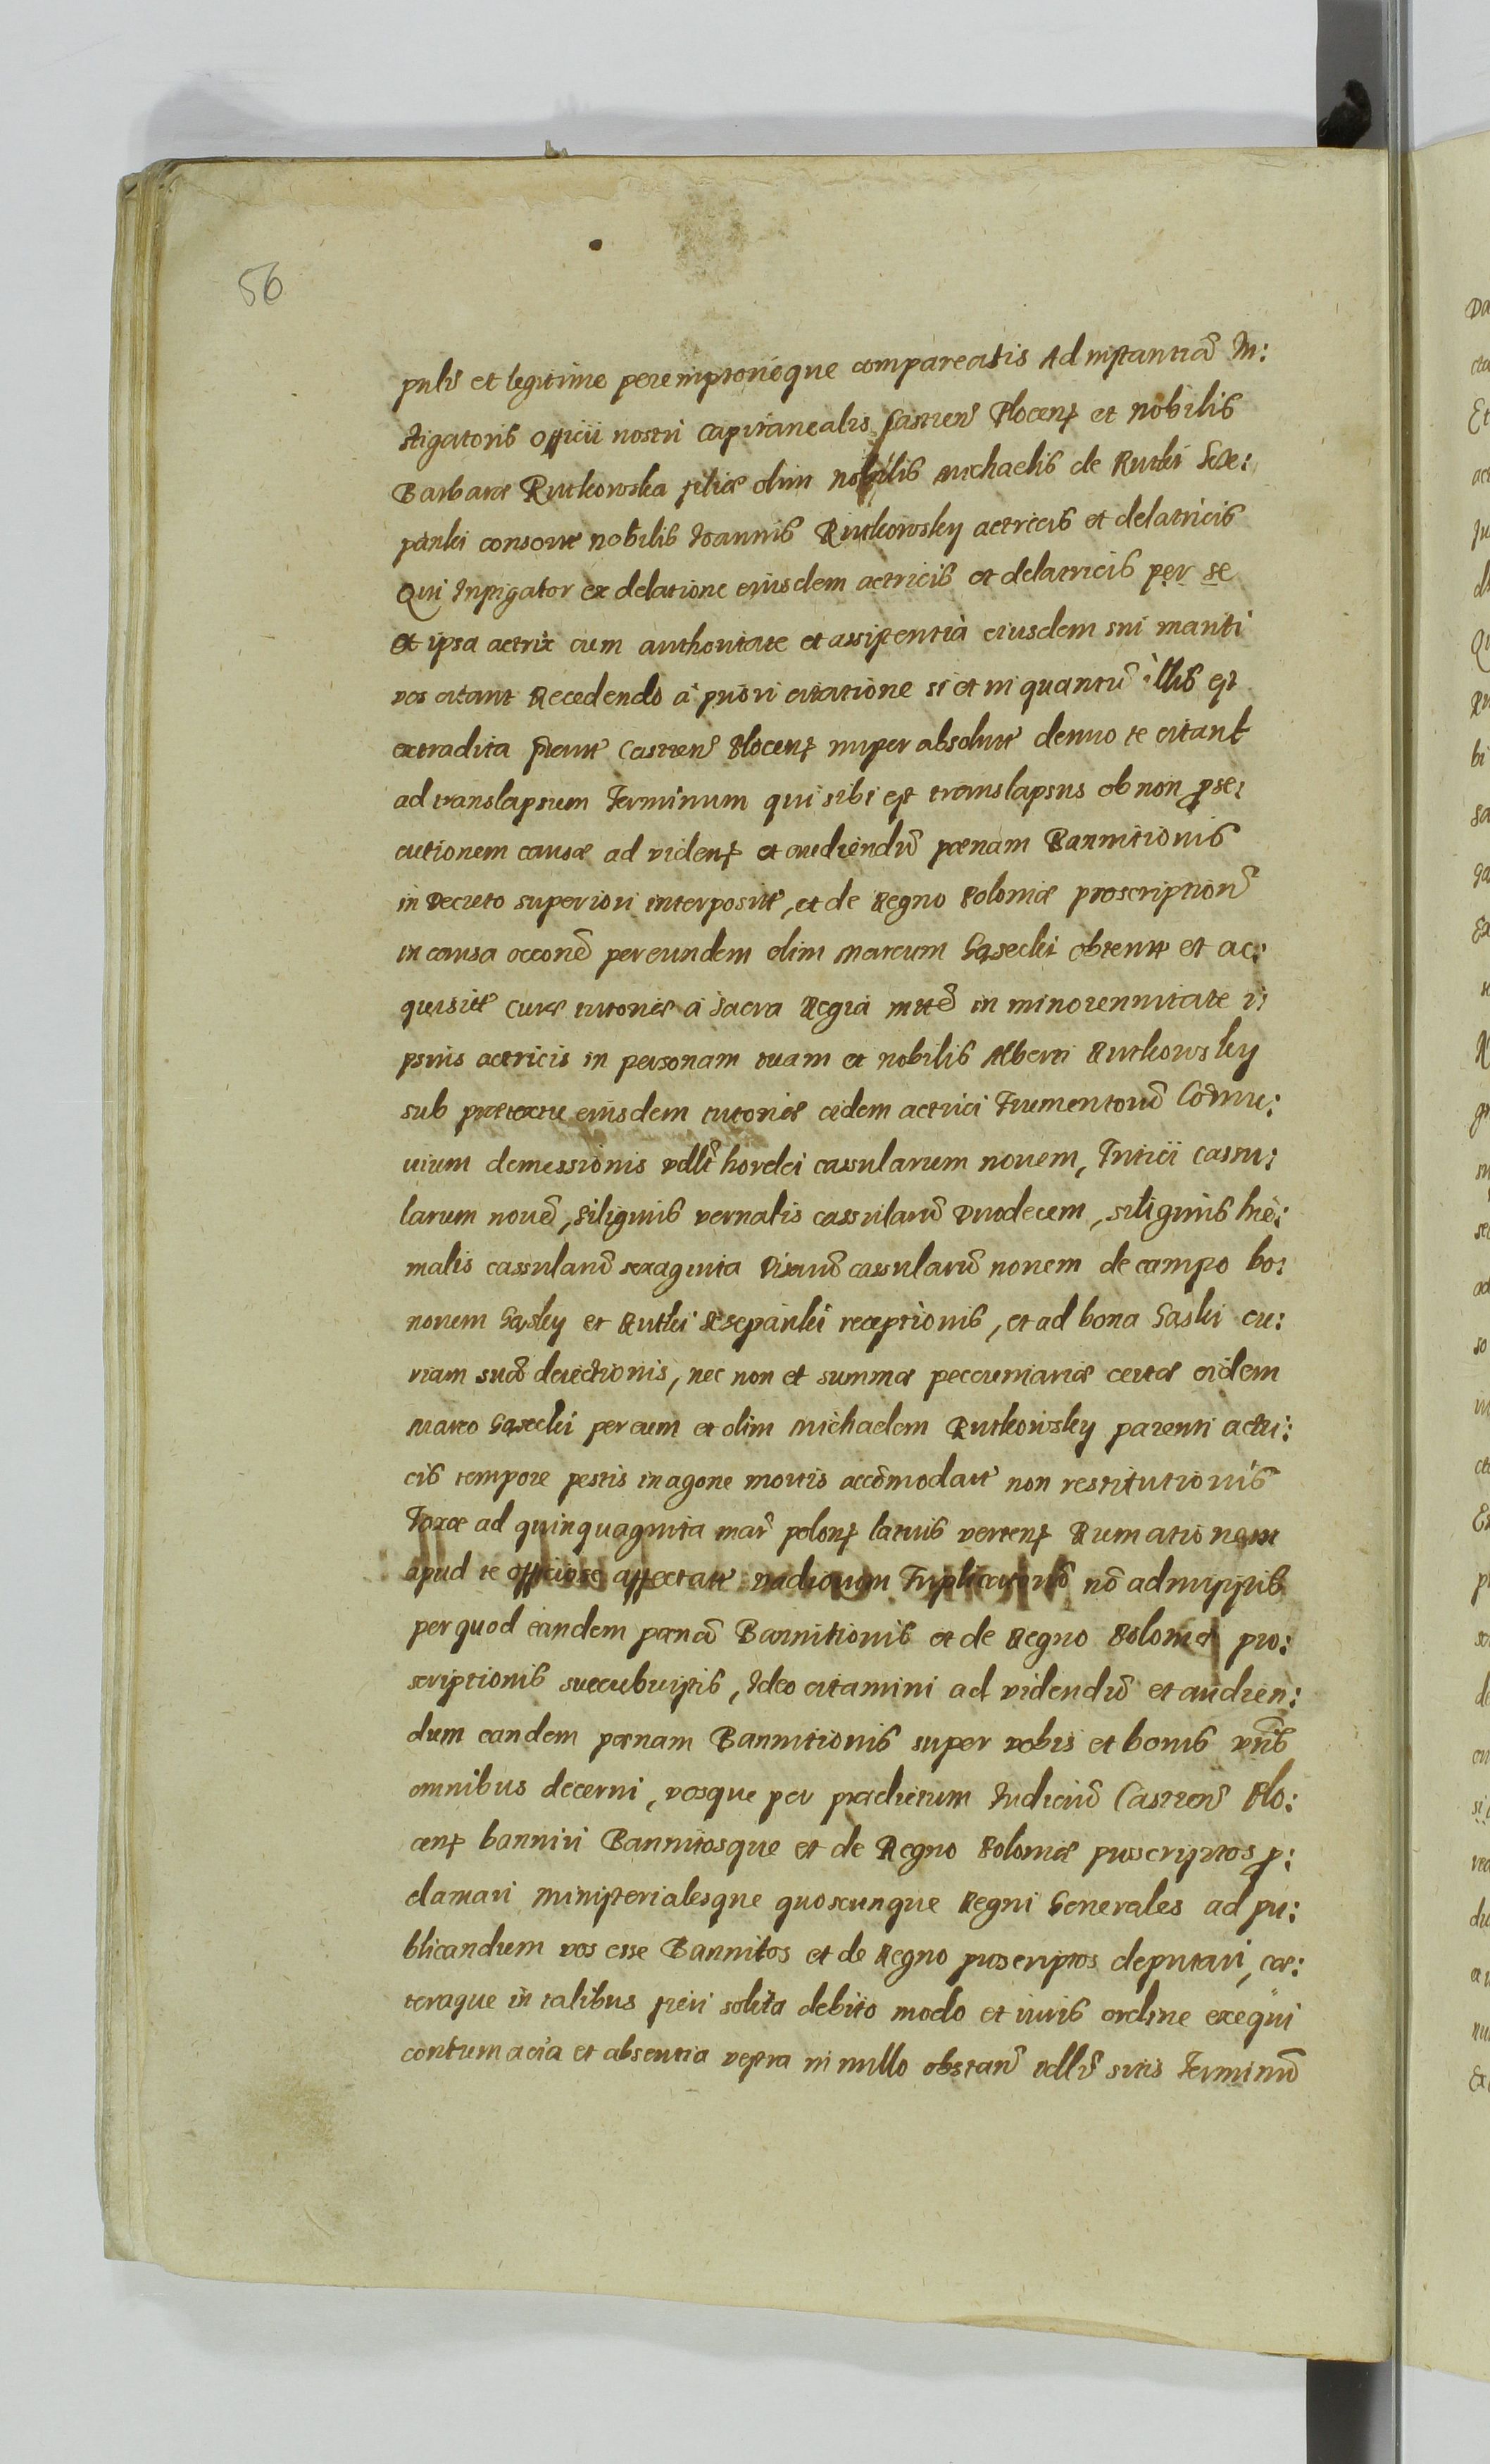 56
pnlr et legitime peremptorieque compareatis Ad instantiā In:
stigatoris officii nostri capitanealis Castren Plocens et nobilis
Barbaræ Rutkowska filiæ olim nobilis Michaelis de Rutki Scze:
panki consorte nobilis Ioannis Rutkowsky actricis et delatricis
Qui Instigator ex delatione eiusdem actricis et delatricis per se
et ipsa actrix cum authoritate et assistentia eiusdem sui mariti
vos citant Recedendo a priori citatione si et in quantū illis est
extradita Castren Plocens nuper absolute denuo te citant
ad translapsum Terminum qui sibi est translapsus ob non pse:
cutionem causæ ad videns et audiendū pœnam Bannitionis
in Decreto superiori interposite, et de Regno Poloniæ proscription
in causa per eundem olim Marcum Gąsecki obtente et ac:
quisite curæ tutoriæ a Sacra Regia mtte in minorennitate i:
psius actricis in personam tuam et nobilis Alberti Rutkowsky
sub prætextu eiusdem tutoriæ eidem actrici Frumentorū
uium demessionis vdlt hordei cassularum nouem, Tritici cassu:
larum nouē, siliginis vernalis cassularū duodecem, siliginis hie:
malis cassularū sexaginta Pisarū cassularū nonem de campo bo:
norum Gąsky et Rutki Szczepanki receptionis, et ad bona Gaski cu:
riam suā deuectionis, nec non et summæ peccuniariæ certæ eidem
Marco Gąsecki per eum et olim Michaelem Rutkowsky parenti actri:
cis tempore pestis in agone mortis accōmodate non restitutionis
Taxæ ad quinquaginta mar polons latius vertens Rumationem
apud te officiose affectate vadiorum Triplicatorū nō admissistis
per quod eandem pœnā Bannitionis et de Regno Poloniæ pro:
scriptionis succubuistis, Ideo citamini ad videndū et audien:
dum eandem pœnam Bannitionis super vobis et bonis vris
omnibus decerni, vosque per prædictum Iudiciū Castren Plo:
cens banniri Bannitosque et de Regno Poloniæ proscriptos p:
clamari Ministerialesque quoscunque Regni Generales ad pu:
blicandum vos esse Bannitos et de Regno proscriptos deputari, cæ:
teraque in talibus fieri solita debito modo et iuris ordine exequi
contumacia et absentia vestra in nullo obstan vdlt sitis Terminū